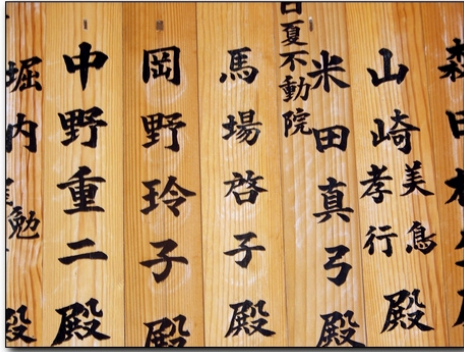 森田
山崎
美
孝行
殿
夏不動院
米田真弓殿
馬場啓子殿
岡野玲子殿
中野重二殿
堀内
勉
殿